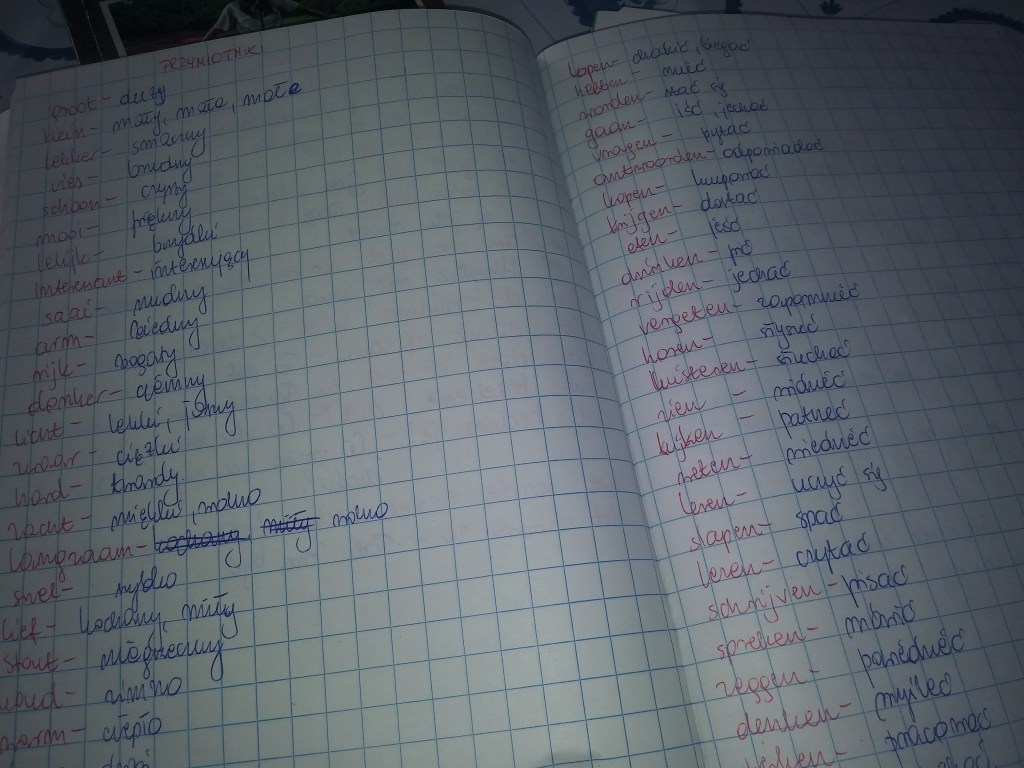 PRZYMIOTNIKI
groot - duży
klein - mały, mała, małe
lekker - smaczny
vies - brudny
schoon - czysty
mooi - piękny
lelijk - brzydki
interesant - interesujący
saai - nudny
arm - biedny
rijk - bogaty
donker - ciemny
licht - lekki, jasny
zwaar - ciężki
hard - twardy
zacht - miękki, wolno
langzaam - wolno
snel - szybko
lief - kochany, miły
stout - niegrzeczny
koud - zimno
warm - ciepło
lopen - chodzić, biegać
hebben - mieć
worden - stać się
gaan - iść, jechać
vragen - pytać
antwoorden - odpowiadać
kopen - kupować
krijgen - dostać
eten - jeść
drinken - pić
rijden - jechać
vergeten - zapomnieć
horen - słyszeć
luisteren - słuchać
zien - widzieć
kijken - patrzeć
weten - wiedzieć
leren - uczyć się
slapen - spać
lezen - czytać
schrijven - pisać
spreken - mówić
zeggen - powiedzieć
denken - myśleć
pracować